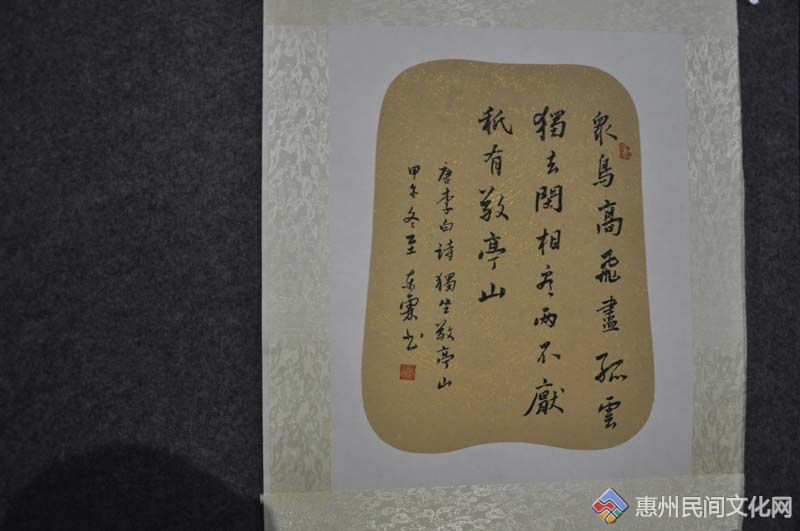 眾鳥高飛盡孤雲
獨去閑相看兩不厭
秪有敬亭山
唐李白詩獨坐敬亭山
甲午冬至 東霖书
惠州民间文化网